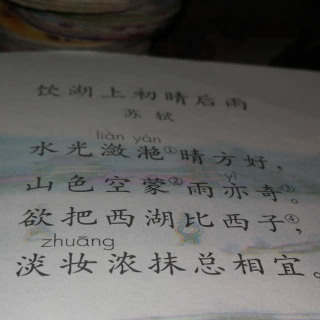 饮湖上初晴后雨
苏轼
liàn yàn
水光潋滟①晴方好，
yì
山色空蒙②雨亦奇③。
欲把西湖比西子④，
zhuāng
淡妆浓抹总相宜。